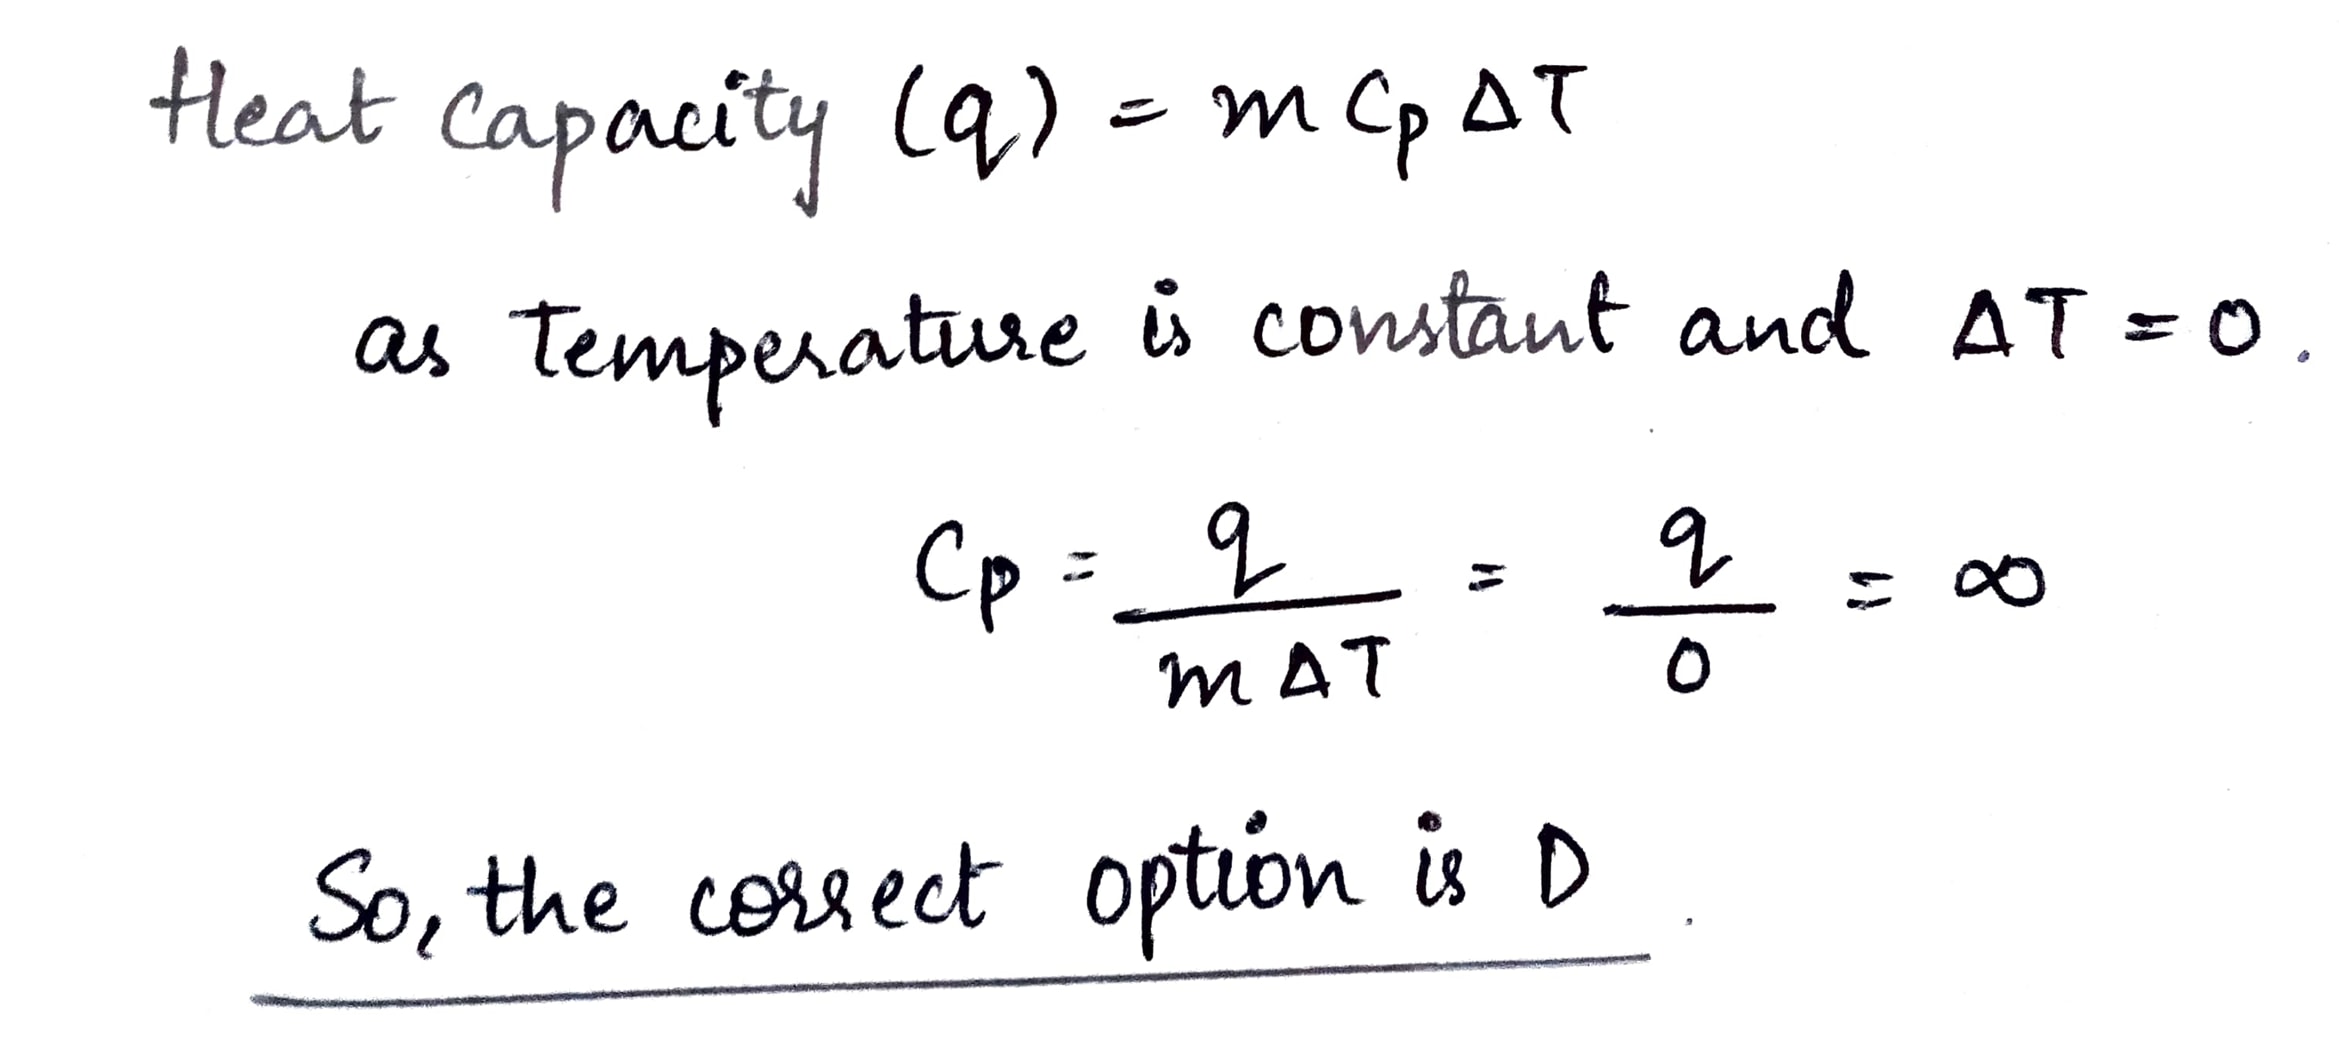 Heat Capacity (q) = m Cp ΔT
as Temperature is constant and ΔT = 0.
Cp = q / m ΔT = q / 0 = ∞
So, the correct option is D.